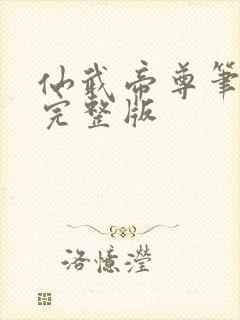 仙武帝尊筆
完整版
洛憶瀅